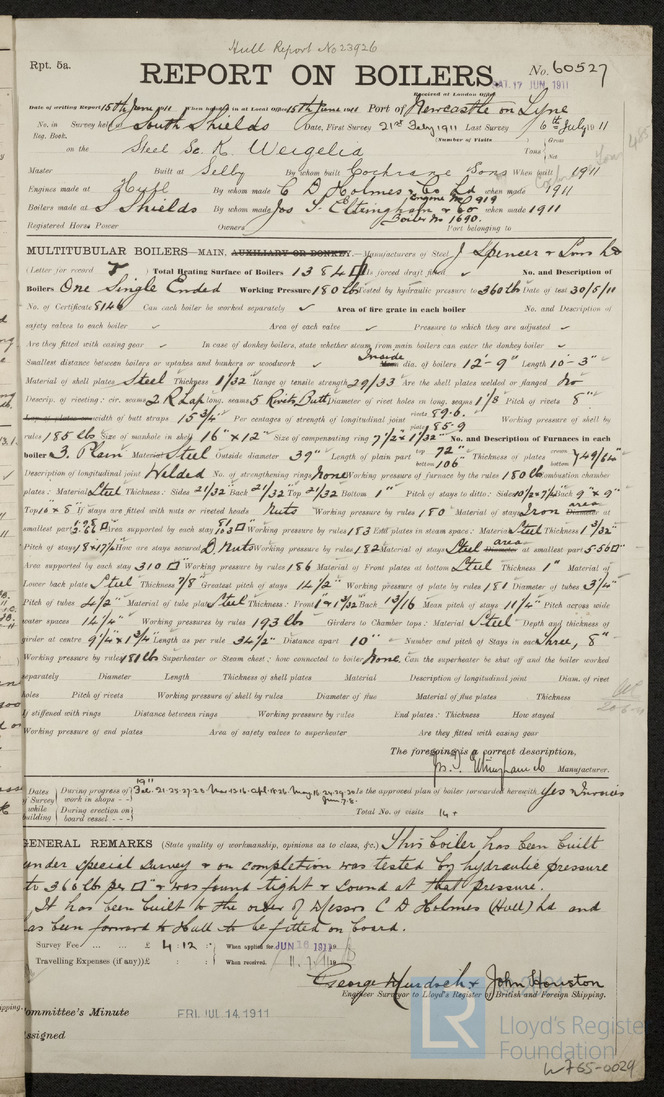 Hull Report No 23926
Rpt. 5a.
REPORT ON BOILERS. No. 60527
Received at London Office SAT. 17 JUN. 1911
Date of writing Report 15th June 1911 When handed in at Local Office 15th June 1911 Port of Newcastle on Tyne
No. in Survey held at South Shields Date, First Survey 21st Feby 1911 Last Survey 6th July 1911
Reg. Book. (Number of Visits Gross
on the Steel Sc. K. Weigelia Tons Net
Master Built at Selby By whom built Cochrane & Sons When built 1911
Engines made at Hull By whom made C D Holmes & Co Ld Engine No 919 when made 1911
Boilers made at S Shields By whom made Jos. T. Eltringham & Co Boiler No 1690. when made 1911
Registered Horse Power Owners Port belonging to
MULTITUBULAR BOILERS—MAIN, AUXILIARY OR DONKEY.—Manufacturers of Steel J. Spencer & Sons Ld
(Letter for record ) Total Heating Surface of Boilers 1384 □ Is forced draft fitted ✓ No. and Description of
Boilers One Single Ended Working Pressure 180 lb Tested by hydraulic pressure to 360 lb Date of test 30/5/11
No. of Certificate 8146 Can each boiler be worked separately ✓ Area of fire grate in each boiler No. and Description of
safety valves to each boiler ✓ Area of each valve ✓ Pressure to which they are adjusted ✓
Are they fitted with easing gear ✓ In case of donkey boilers, state whether steam from main boilers can enter the donkey boiler ✓
Smallest distance between boilers or uptakes and bunkers or woodwork ✓ Inside dia. of boilers 12'-9" Length 10'-3"
Material of shell plates Steel Thickness 1 1/32" Range of tensile strength 29/33 Are the shell plates welded or flanged No
Descrip. of riveting: cir. seams 2 R Lap long. seams 5 Rivets Butt Diameter of rivet holes in long. seams 1 1/8 Pitch of rivets 8"
width of butt straps 15 3/4" Per centages of strength of longitudinal joint rivets 89.6. plate 85.9 Working pressure of shell by
rules 185 lbs Size of manhole in shell 16" x 12" Size of compensating ring 7 1/2 x 1 1/32" No. and Description of Furnaces in each
boiler 3. Plain Material Steel Outside diameter 39" Length of plain part top 72" bottom 106" Thickness of plates crown bottom 49/64"
Description of longitudinal joint Welded No. of strengthening rings None Working pressure of furnace by the rules 180 lb Combustion chamber
plates: Material Steel Thickness: Sides 21/32 Back 21/32 Top 21/32 Bottom 1" Pitch of stays to ditto: Sides 10 1/2 x 7 1/2 Back 9" x 9"
Top 10 x 8" If stays are fitted with nuts or riveted heads Nuts Working pressure by rules 180 Material of stays Iron area at
smallest part Area supported by each stay Working pressure by rules 183 End plates in steam space: Material Steel Thickness 1 3/32"
Pitch of stays 18 x 17 1/2 How are stays secured D. Nuts Working pressure by rules 182 Material of stays Steel area at smallest part 5.56 □"
Area supported by each stay 310 □" Working pressure by rules 186 Material of Front plates at bottom Steel Thickness 1" Material of
Lower back plate Steel Thickness 7/8 Greatest pitch of stays 14 1/2" Working pressure of plate by rules 181 Diameter of tubes 3 1/4"
Pitch of tubes 4 1/2" Material of tube plates Steel Thickness: Front 1" & 1 3/32 Back 13/16 Mean pitch of stays 11 1/4" Pitch across wide
water spaces 14 1/4" Working pressures by rules 193 lbs Girders to Chamber tops: Material Steel Depth and thickness of
girder at centre 9 1/4" x 1 3/4" Length as per rule 34 1/2" Distance apart 10" Number and pitch of Stays in each Three, 8"
Working pressure by rules 181 lb Superheater or Steam chest; how connected to boiler None. Can the superheater be shut off and the boiler worked
separately Diameter Length Thickness of shell plates Material Description of longitudinal joint Diam. of rivet
holes Pitch of rivets Working pressure of shell by rules Diameter of flue Material of flue plates Thickness
If stiffened with rings Distance between rings Working pressure by rules End plates: Thickness How stayed
Working pressure of end plates Area of safety valves to superheater Are they fitted with easing gear
The foregoing is a correct description,
Jos. T. Eltringham & Co Manufacturer.
Dates of Survey while building During progress of work in shops - - 1911 Feb. 21.25.27.28 Mar 13.16 Apl 18.26 May 16.24.29.30 June 7.8. Is the approved plan of boiler forwarded herewith Yes & Invoices
During erection on board vessel - - - Total No. of visits 14 +
GENERAL REMARKS (State quality of workmanship, opinions as to class, &c.) This boiler has been built
under special survey & on completion was tested by hydraulic pressure
to 360 lb per □" & was found tight & sound at that pressure.
It has been built to the order of Messrs C D Holmes (Hull) Ld and
has been forward to Hull to be fitted on board.
Survey Fee ... ... £ 4 : 12 : When applied for, JUN 16 1911
Travelling Expenses (if any) £ : : When received, 19
George Murdoch & John Houston
Engineer Surveyor to Lloyd's Register of British and Foreign Shipping.
Committee's Minute FRI. JUL 14. 1911
Assigned
LR Lloyd's Register
Foundation
W765-0029